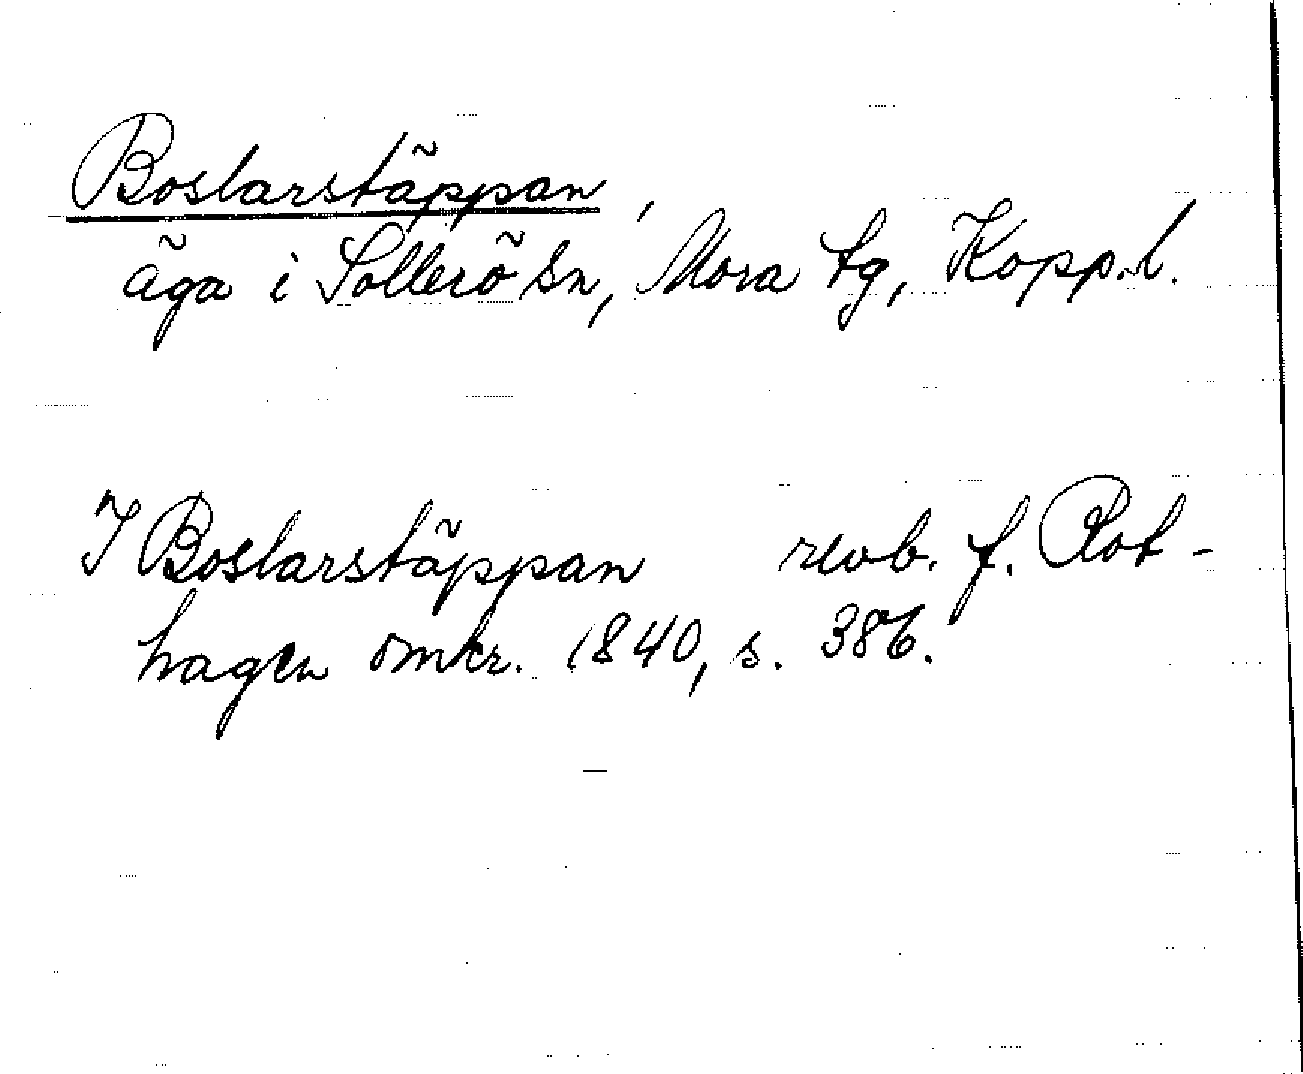 Boslarstäppan,
äga i Sollerö sn, Mora tg, Kopp.l.
I Boslarstäppan revb. f. Rot-
hagen omkr. 1840, s. 386.